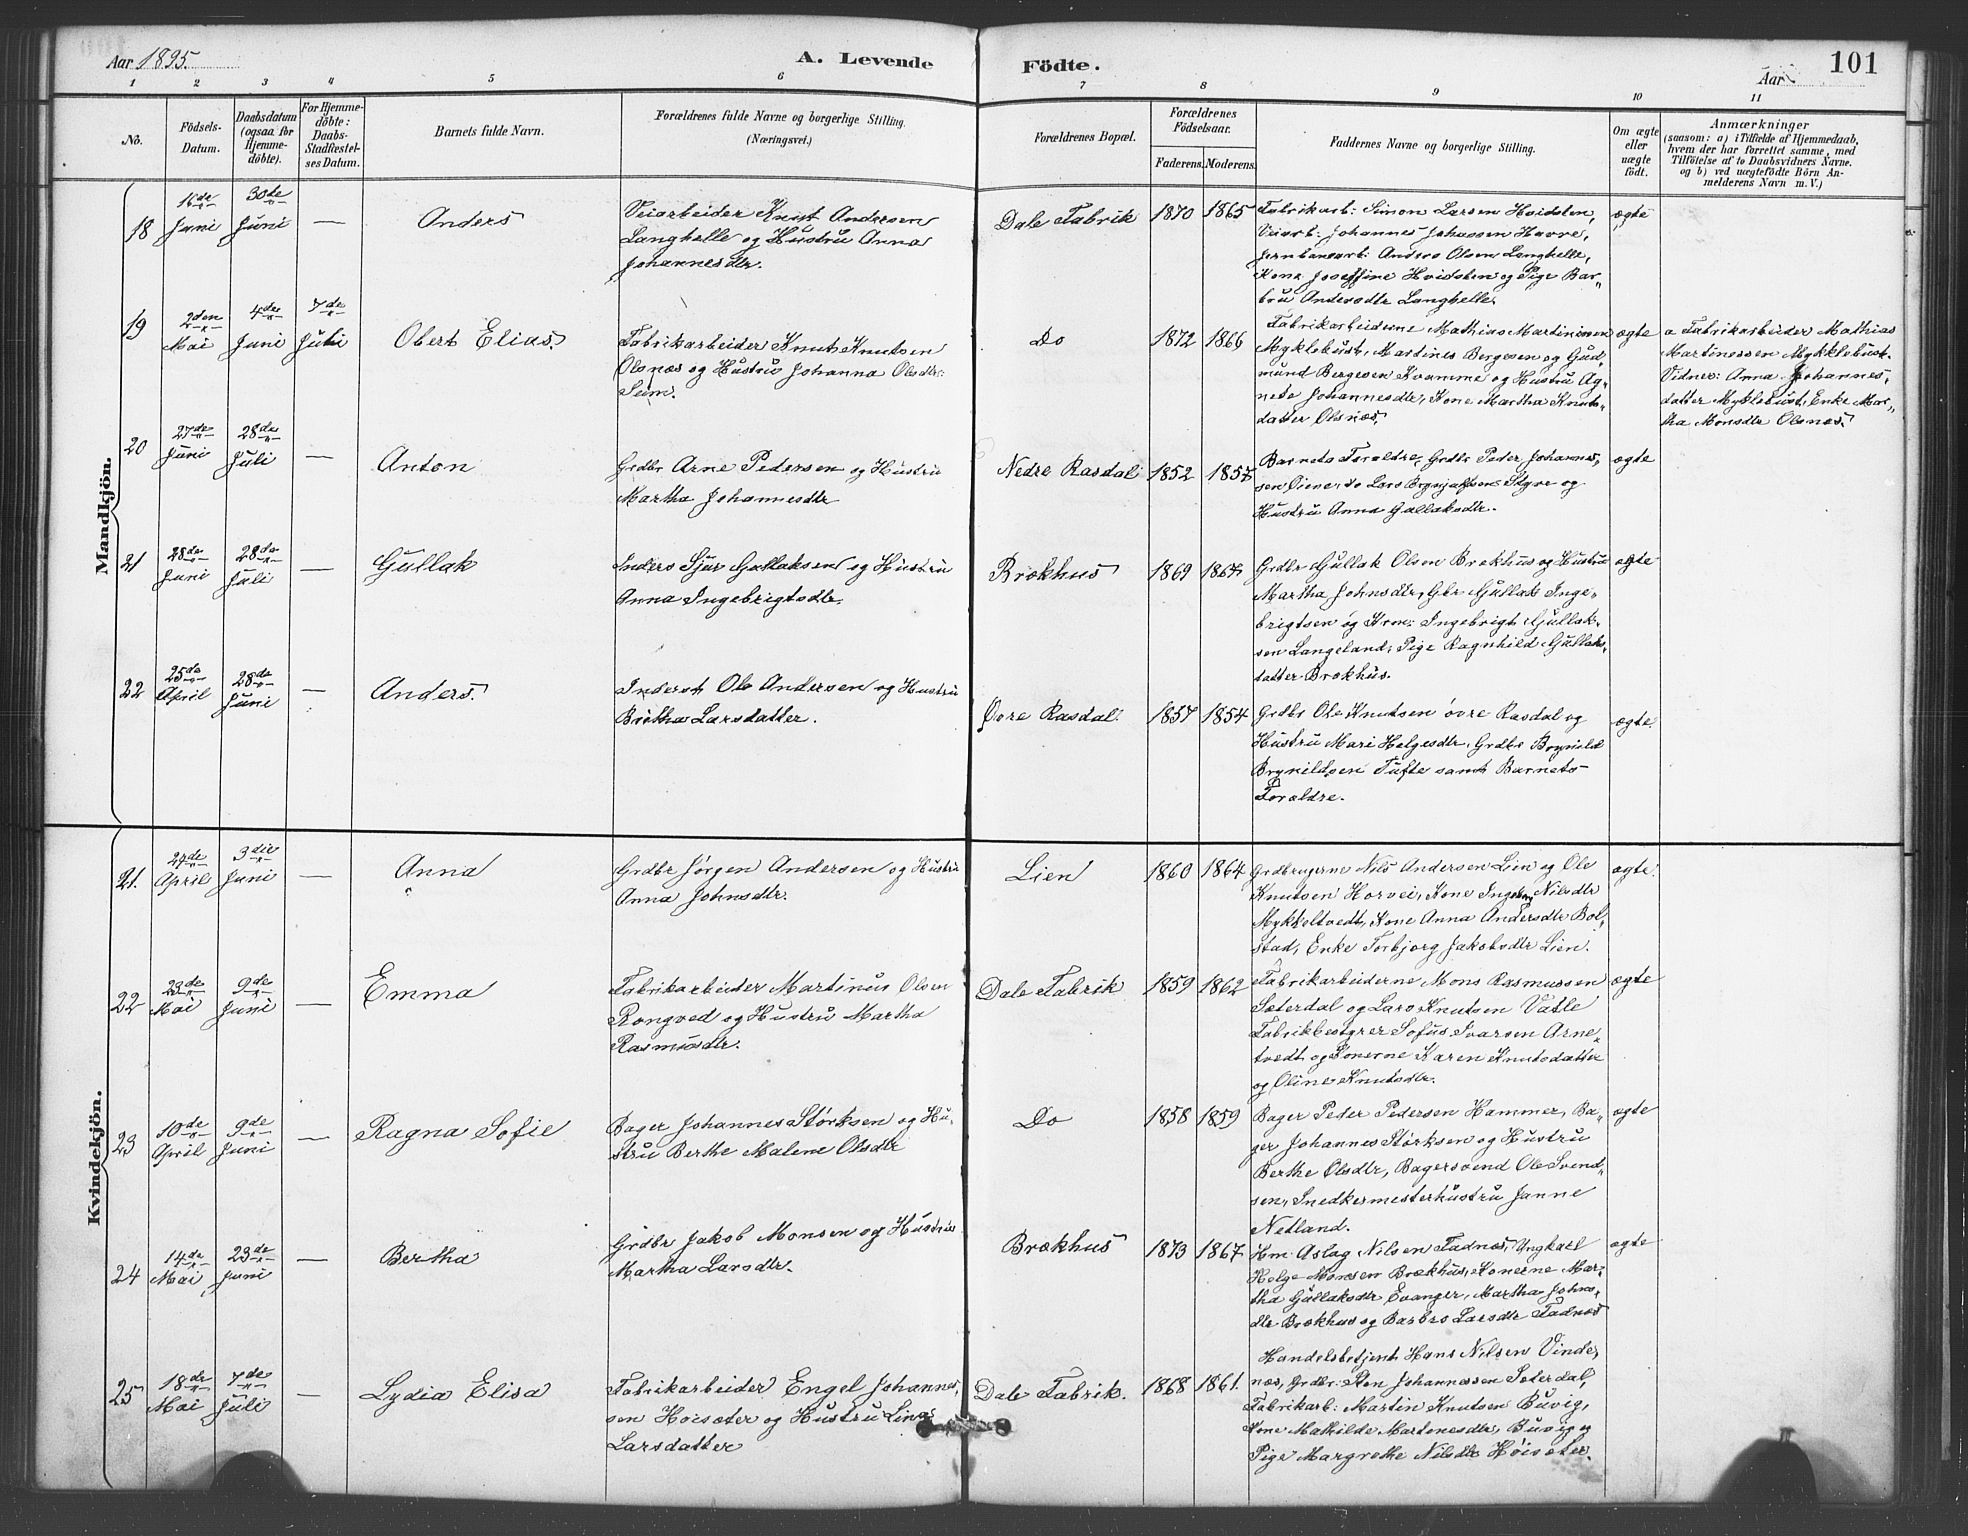 Aar 1895.
A. Levende
Födte.
Aar
101
1 2 3 4 5 6 7 8 9 10 11
No.
Födsels-
Datum.
Daabsdatum
(ogsaa for
Hjemme-
döbte).
For Hjemme-
döbte:
Daabs-
Stadfæstel-
ses Datum.
Barnets fulde Navn.
Forældrenes fulde Navne og borgerlige Stilling.
(Næringsvei.)
Forældrenes Bopæl.
Forældrenes
Födselsaar.
Faderens. Moderens.
Faddernes Navne og borgerlige Stilling.
Om ægte
eller
uægte
födt.
Anmærkninger
(saasom: a) i Tilfælde af Hjemmedaab,
hvem der har forrettet samme, med
Tilföielse af to Daabsvidners Navne.
og b) ved uægtefödte Börn An-
melderens Navn m. V.)
Mandkjön.
18
16de
Juni
30de
Juni
—
Anders
Veiarbeider Knut Andersen
Langhelle og Hustru Anna
Johannesdtr.
Dale Fabrik
1870
1865
Fabrikarb: Simon Larsen Hvidsten,
Veiarb: Johannes Johassen Havre,
Jernbanearb: Anders Olsen Langhelle,
Kone Joseffine Hvidsten og Pige Bar„
bru Andersdtr Langhelle.
ægte
19
2den
Mai
4de
Juni
7de
Juli
Obert Elias.
Fabrikarbeider Knut Knutsen
Olsnæs og Hustru Johanna Olsdtr:
Seim.
Do
1872
1866
Fabrikarbeiderne Mathias Martinssen
Myklebust, Martines Bergesen og Gud„
mund Bergesen Kvamme og Hustru Ag„
nete Johannesdtr, Kone Martha Knuts„
datter Olsnæs.
ægte
a Fabrikarbeider Mathias
Martinessen Mykklebust.
Vidner: Anna Johannes„
datter Myklebust, Enke Mar„
tha Monsdtr Olsnæs.
20
27de
Juni
28de
Juli
—
Anton
Grdbr Arne Pedersen og Hustru
Martha Johannesdtr
Nedre Rasdal
1852
1857
Barnets Forældre, Grdbr Peder Johannes„
sen Øien do Lars Brynjulfsen Styve og
Hustru Anna Gullaksdtr.
ægte
21
28de
Juni
28de
Juli
—
Gullak
Inders Sjur Gullaksen og Hustru
Anna Ingebrigtsdtr.
Brækhus
1869
1867
Grdbr Gullak Olsen Brækhus og Hustru
Martha Johnsdtr, Gbr Gullak Inge„
brigtsen og Kone: Ingebrigt Gullak„
sen Langeland, Pige Ragnhild Gullaks„
datter Brækhus.
ægte
22
25de
April
28de
Juni
—
Anders.
Inderst Ole Andersen og Hustru
Britha Larsdatter.
Øvre Rasdal.
1857
1854
Grdbr Ole Knutsen øvre Rasdal og
Hustru Mari Helgesdtr, Grdbr Brynild
Brynildsen Tufte samt Barnets
Forældre.
ægte.
Kvindekjön.
21.
April
3die
Juni
—
Anna
Grdbr Jørgen Andersen og Hustru
Anna Johnsdtr.
Lien
1860
1864
Grdbrugerne Nils Andersen Lien og Ole
Knutsen Horvei, Kone Ingeborg Nilsdtr
Mykkeltvedt, Kone Anna Andersdtr Bol„
stad, Enke Torbjorg Jakobsdtr Lien.
ægte.
22
23de
Mai
9de
Juni
—
Emma
Fabrikarbeider Martinus Olsen
Rongved og Hustru Martha
Rasmusdtr.
Dale Fabrik
1859
1862
Fabrikarbeiderne Mons Rasmussen
Sæterdal og Lars Knutsen Vatle
Fabrikbestyrer Sofus Ivarsen Arne„
tvedt og Konerne Karen Knutsdatter
og Oline Knutsdtr.
ægte
23
10de
April
9de
Juni
—
Ragna Sofie
Bager Johannes Størksen og Hu„
stru Berthe Malene Olsdtr
Do
1858
1859
Bager Peder Pedersen Hammer, Ba„
ger Johannes Størksen og Hustru
Berthe Olsdtr, Bagersvend Ole Svend„
sen, Snedkermesterhustru Janne
Netland.
ægte
24
14de
Mai
23de
Juni
—
Bertha
Grdbr Jakob Monsen og Hustru
Martha Larsdtr.
Brækhus
1873
1867
Hm: Aslag Nilsen Fadnæs, Ungkarl
Helge Monsen Brækhus, Konerne Mar„
tha Gullaksdtr Evanger, Martha Johns„
dtr Brækhus og Barbro Larsdtr Fadnæs
ægte
25
18de
Mai
7de
Juli
—
Lydia Elisa
Fabrikarbeider Engel Johannes„
sen Høisæter og Hustru Lina
Larsdatter
Dale Fabrik.
1868
1861.
Handelsbetjent Hans Nilsen Vinde„
næs, Grdbr: Sten Johannessen Sæterdal,
Fabrikarb: Martin Knutsen Buvig,
Kone Mathilde Martinesdtr, Buvig og
Pige Margrethe Nilsdtr Høisæter.